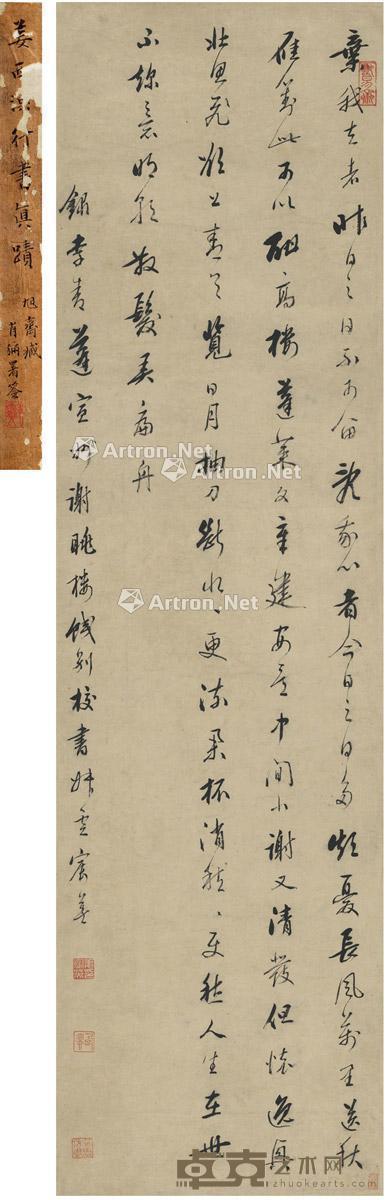 棄我去者昨日之日不可留亂我心者今日之日多煩憂長風萬里送秋
雁對此可以酣高樓蓬萊文章建安骨中間小謝又清發但懷逸興
壯思飛欲上青天覽日月抽刀斷水、更流舉杯消愁、更愁人生在世
不稱意明朝散髮弄扁舟
錄李青蓮宣州謝朓樓餞別校書叔雲 宸英
姜西溟行書真蹟
旭齋藏
署簽
Artron.Net
Artron.Net
Artron.Net
Artron.Net
卓克艺术网
www.zhuokearts.com